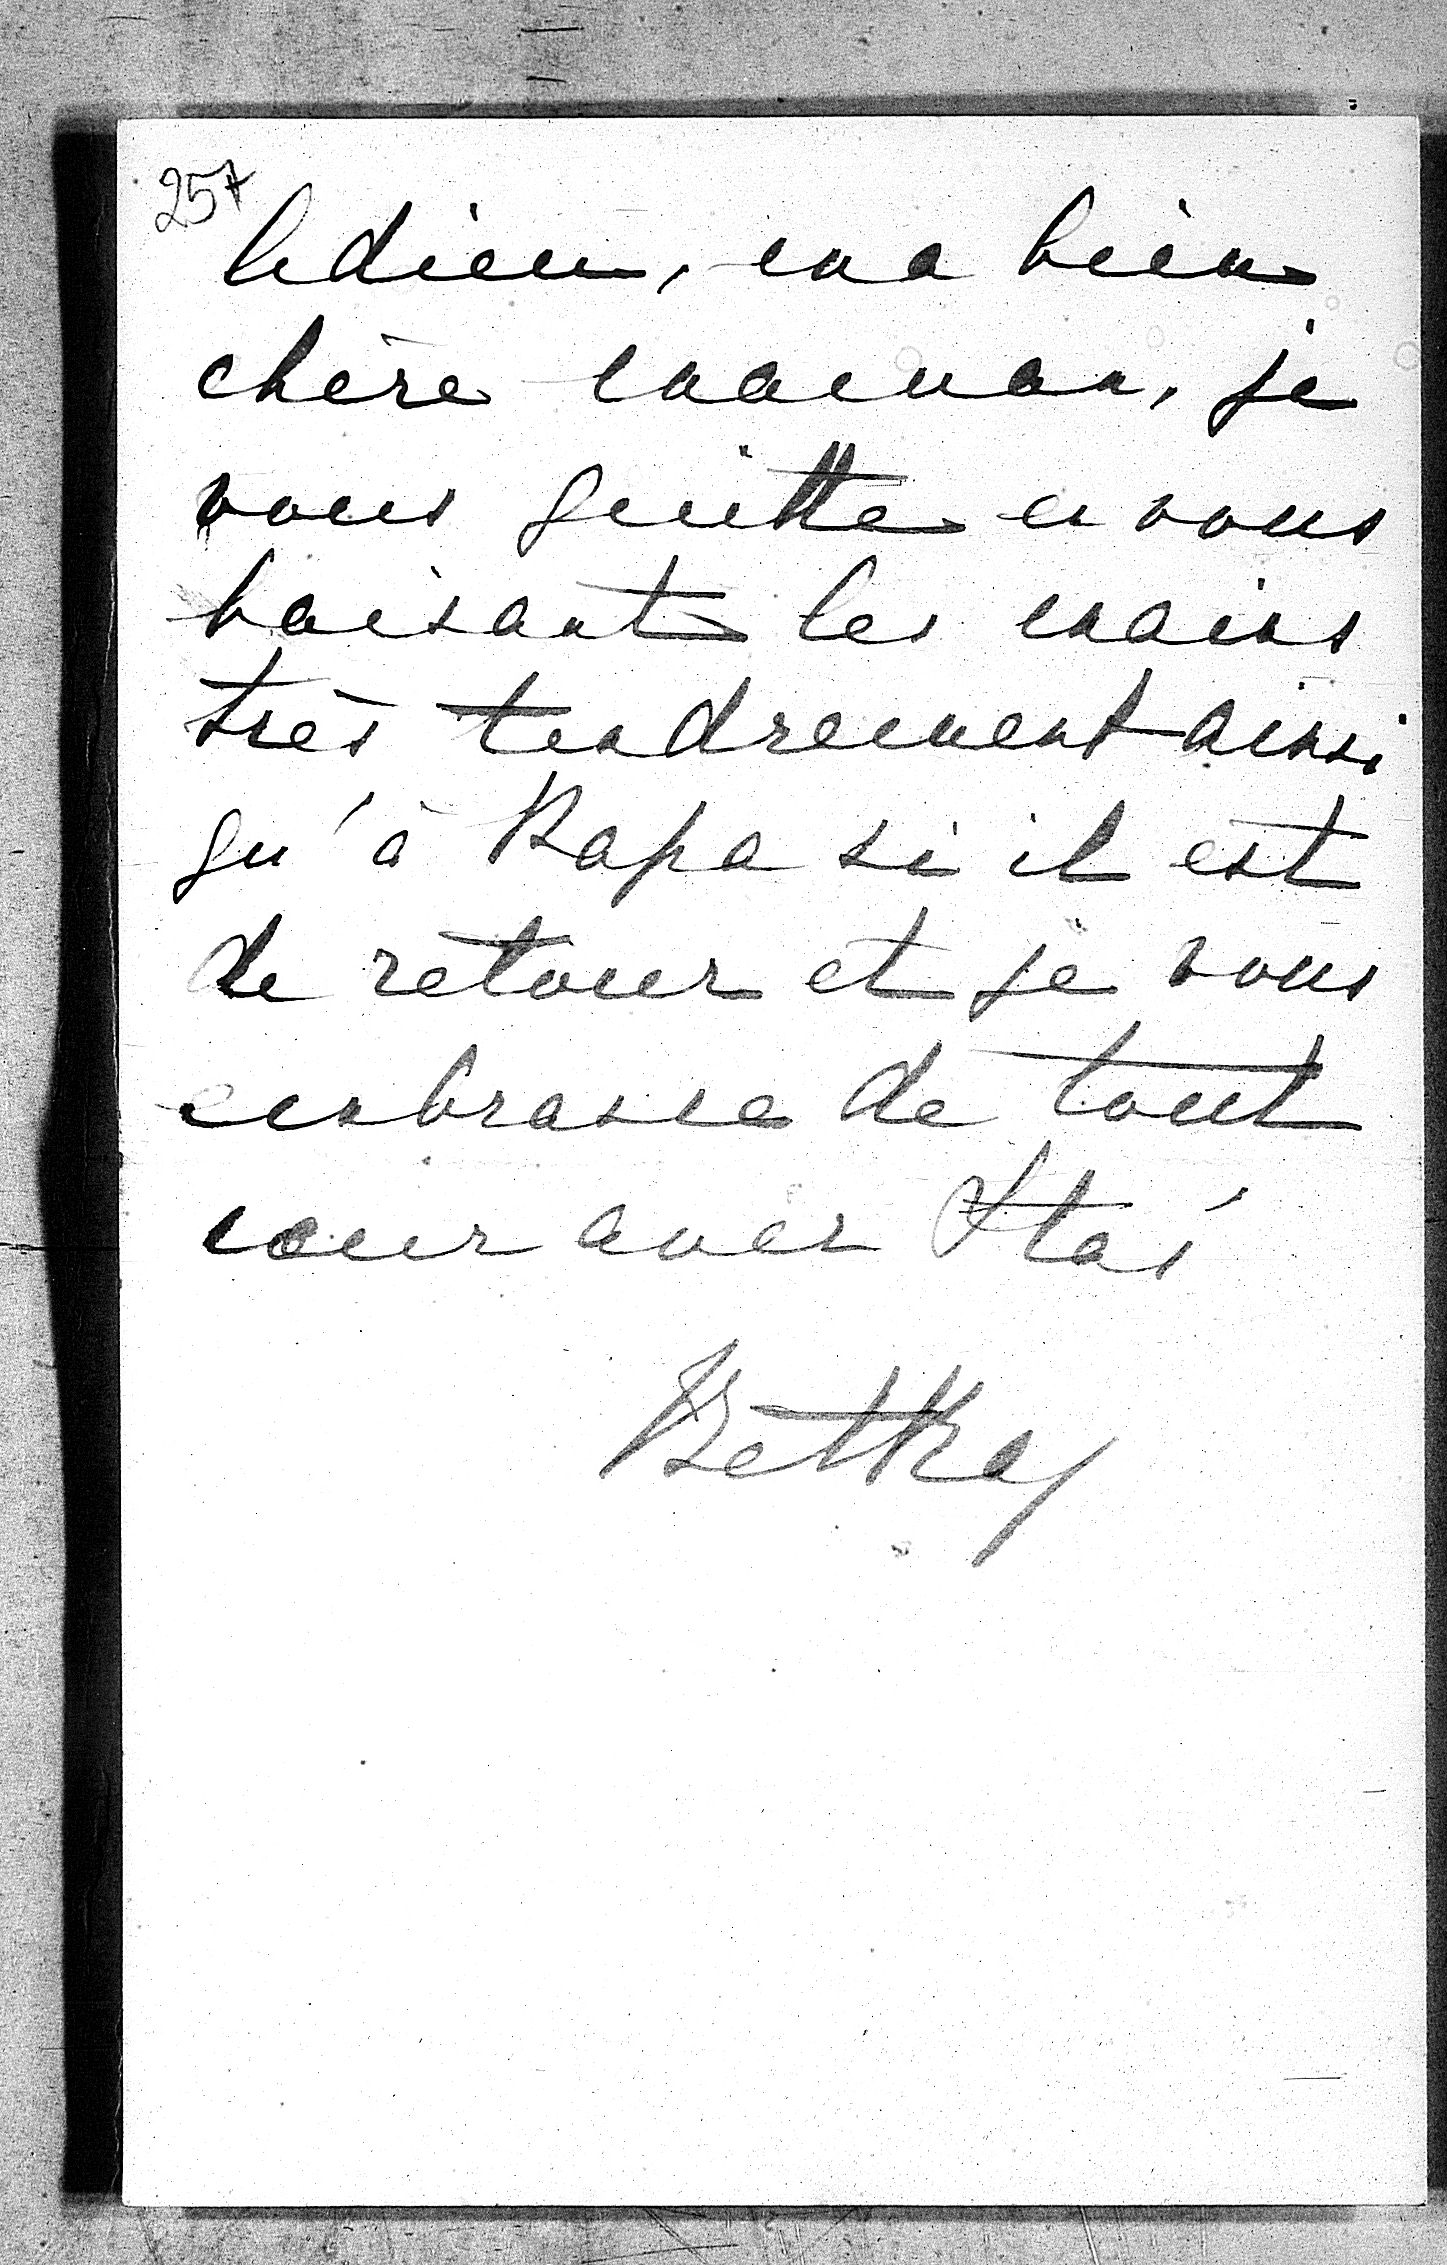 257
Adieu, ma bien
chère maman, je
vous quitte en vous
baisant les mains
très tendrement ainsi
qu'à Papa si il est
de retour et je vous
embrasse de tout
cœur avec Staś
Betka